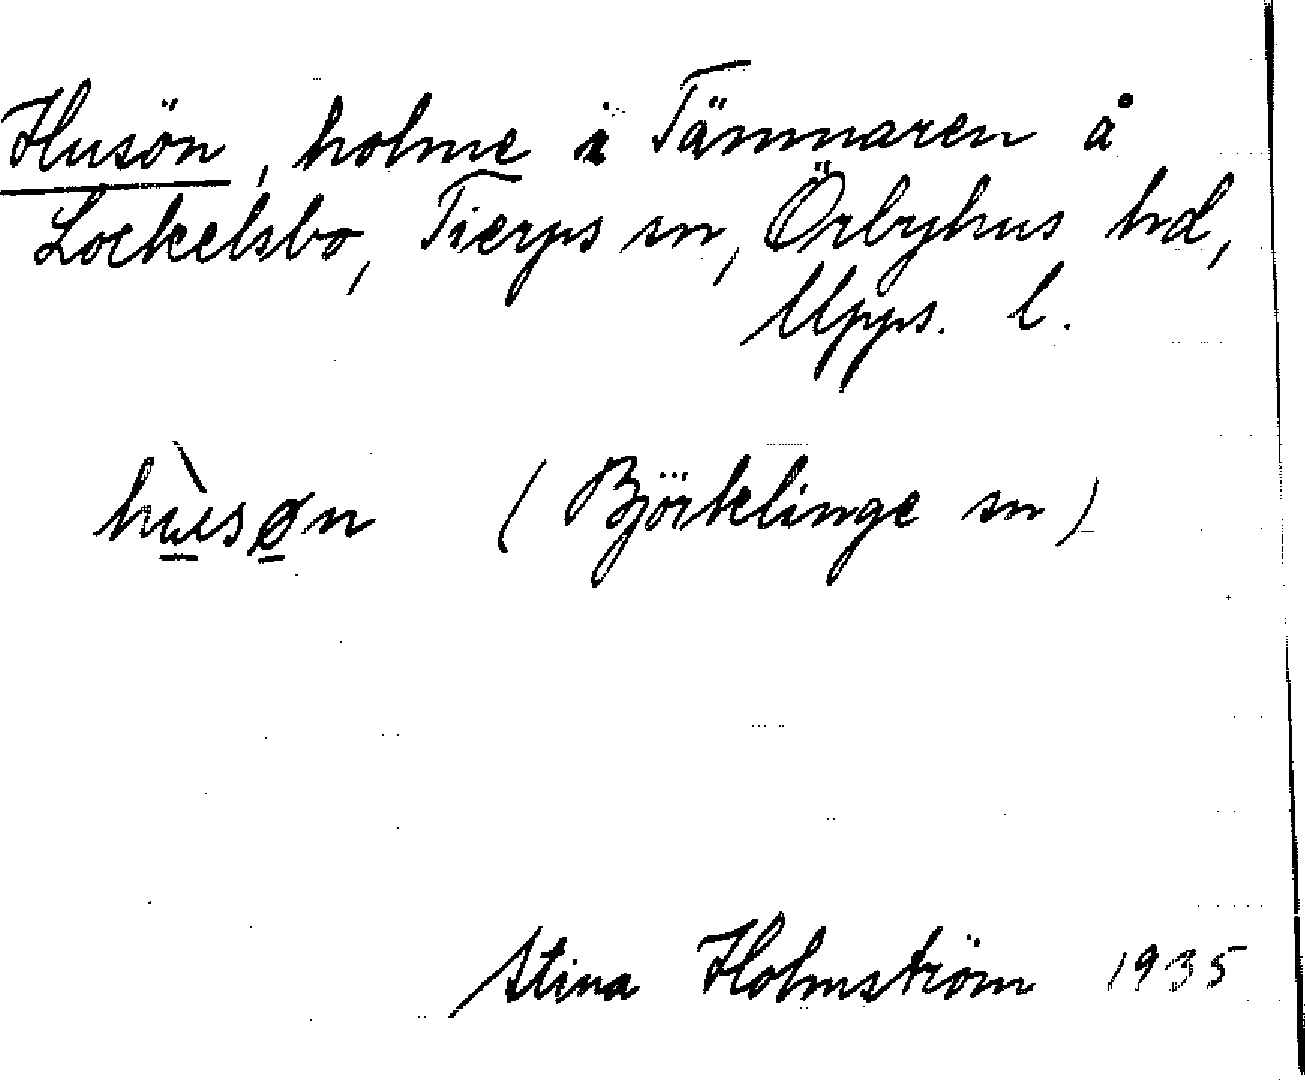 Husön, holme i Tämnaren å
Lockelsbo, Tierps sn, Örbyhus hd,
Upps. l.
hùsøn (Björklinge sn)
Stina Holmström 1935